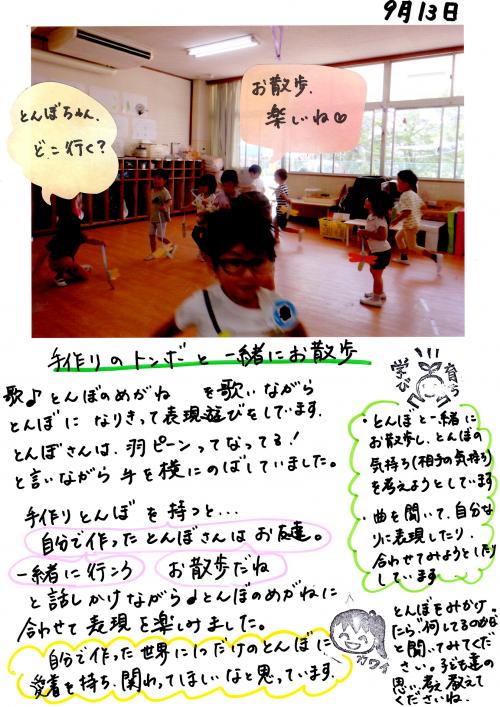 9月13日
とんぼちゃん、
どこ行く？
お散歩、
楽しいね♡
手作りのトンボと一緒にお散歩
歌♪とんぼのめがね を歌いながら
とんぼになりきって表現遊びをしています。
とんぼさんは、羽ピーンってなってる！
と言いながら手を横にのばしていました。
手作りとんぼを持つと…
自分で作ったとんぼさんはお友達。
一緒に行こう お散歩だね
と話しかけながら♪とんぼのめがねに
合わせて表現を楽しみました。
自分で作った世界に1つだけのとんぼに
愛着を持ち、関わってほしいなと思っています。
学び 育つ
・とんぼと一緒に
お散歩し、とんぼの
気持ち(相手の気持ち)
を考えようとしています
・曲を聞いて、自分な
りに表現したり、
合わせてみようとしたり
しています
カワイイ
とんぼをみかけ
たら"何してるのかな"
と聞いてみてくだ
さい。子ども達の
思い、考え 教えて
くださいね。